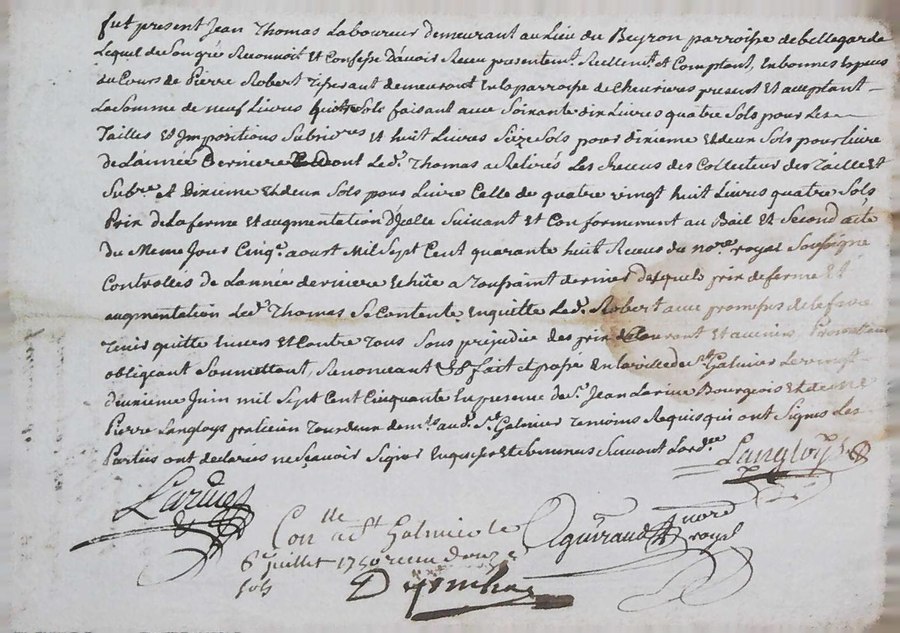 fut present Jean Thomas Laboureur demeurant au Lieu du Beyron parroisse de bellegarde
Lequel de Son gré Reconnoit et Confesse D'avoir Receu presentemt. Réellemt. et Comptant, En bonnes Espèces
du Cours de Pierre Robert Tisserant demeurant En la parroisse de Chevrieres present Et aceptant
La Somme de neuf Livres quatre Sols faisant avec Soixante dix Livres quatre Sols pour Les
Tailles Et Impositions Subvidres Et huit Livres Seize Sols pour dixieme Et deux Sols pour Livre
de L'année Derniere dont Led. Thomas a Retirés Les Receus des Collecteur des Taille Et
Subre. Et Dixieme Et deux Sols pour Livre Celle de quatre vingt huit Livres quatre Sols
Prix de La ferme Et augmentation d'Jcelle Suivant Et Conformement au Bail Et Second acte
du Meme Jour Cinq aoust Mil Sept Cent quarante huit Receus du nore. royal Soussigné
Controllés de L'année derniere Echüe a Toussaint dernier desquels prix de ferme Et
augmentation Led. Thomas Se Contente En quitte Led. Robert avec promesses de Le faire
Tenir quitte Envers Et Contre Tous Sans prejudice des prix du Courant Et avenir, Promettant
obligeant Soumettant, Renonceant fait Et passé En la ville de St. Galmier Le vingt
deuxieme Juin mil Sept Cent Cinquante En presence de Sr. Jean Larive Bourgeois Et de me
Pierre Langloys praticien Tous deux demts. aud. St. Galmier Temoins Requis qui ont Signés Les
Parties ont declarées ne Sçavoir Signer Enquises Suivant Lordce
Langloys
Larive
Conlle a St Galmier le
6e juillet 1750 receu douze
sols
Aguiraud nore
royal